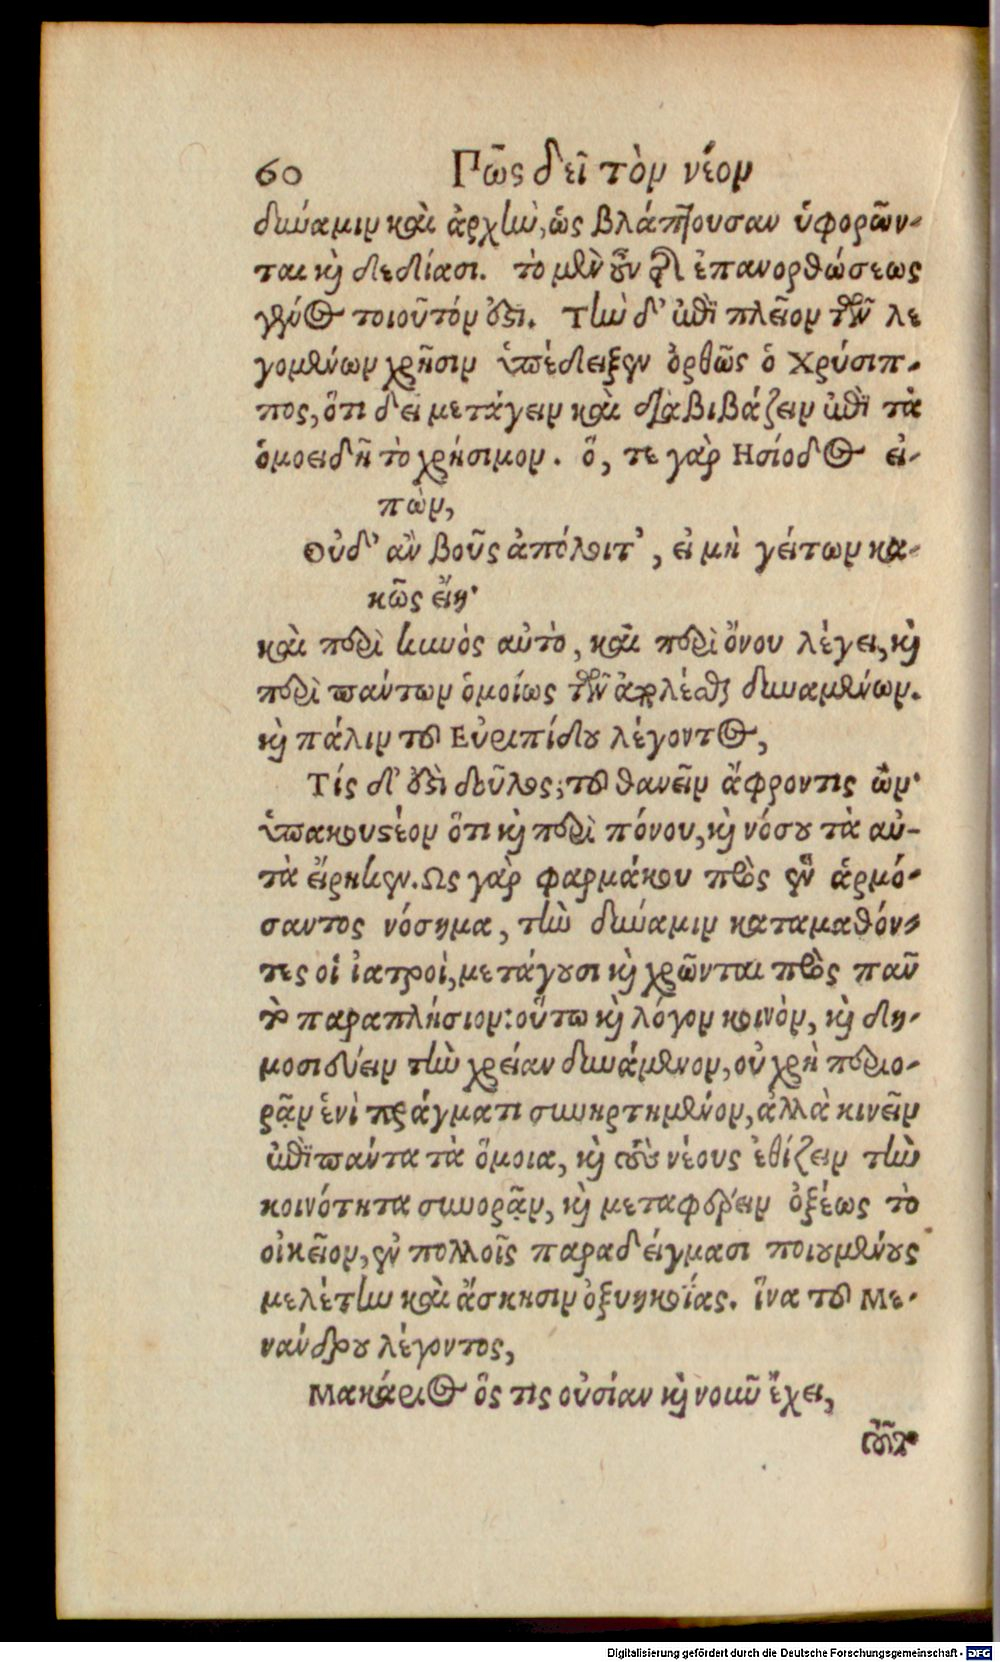 60 Πῶς δεῖ τὸν νέον
δύναμιν καὶ ἀρχὴν, ὡς βλάπτουσαν ὑφορῶν-
ται καὶ δεδίασι. τὸ μὲν οὖν περὶ ἐπανορθώσεως
γένος τοιοῦτόν ἐστι. Τὴν δ' ἐπὶ πλεῖον τῶν λε
γομένων χρῆσιν ὑπέδειξεν ὀρθῶς ὁ Χρύσιπ-
πος, ὅτι δεῖ μετάγειν καὶ διαβιβάζειν ἐπὶ τὰ
ὁμοειδῆ τὸ χρήσιμον. ὅ, τε γὰρ Ησίοδος εἰ-
πὼν,
Οὐδ' ἂν βοῦς ἀπόλοιτ', εἰ μὴ γείτων κα-
κῶς εἴη·
καὶ περὶ κυνὸς αὐτὸ, καὶ περὶ ὄνου λέγει, καὶ
περὶ πάντων ὁμοίως τῶν ἀπολέσθαι δυναμένων.
καὶ πάλιν τοῦ Εὐριπίδου λέγοντος,
Τίς δ' ἐστὶ δοῦλος; τοῦ θανεῖν ἄφροντις ὤν·
ὑπακουστέον ὅτι καὶ περὶ πόνου, καὶ νόσου τὰ αὐ-
τὰ εἴρηκεν. Ως γὰρ φαρμάκου πρὸς ἓν ἁρμό-
σαντος νόσημα, τὴν δύναμιν καταμαθόν-
τες οἱ ἰατροὶ, μετάγουσι καὶ χρῶνται πρὸς πᾶν
τὸ παραπλήσιον: οὕτω καὶ λόγον κοινὸν, καὶ δη-
μοσιεύειν τὴν χρείαν δυνάμενον, οὐ χρὴ περιο-
ρᾷν ἑνὶ πράγματι συνηρτημένον, ἀλλὰ κινεῖν
ἐπὶ πάντα τὰ ὅμοια, καὶ τοὺς νέους ἐθίζειν τὴν
κοινότητα συνορᾷν, καὶ μεταφέρειν ὀξέως τὸ
οἰκεῖον, ἐν πολλοῖς παραδείγμασι ποιουμένους
μελέτην καὶ ἄσκησιν ὀξυηκοΐας. ἵνα τοῦ Με-
νάνδρου λέγοντος,
Μακάριος ὅς τις οὐσίαν καὶ νοῦν ἔχει,
Digitalisierung gefördert durch die Deutsche Forschungsgemeinschaft - DFG